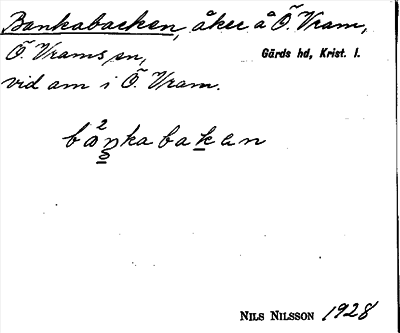 Bankabacken, åker å Ö. Vram,
Ö. Vrams sn,
Gärds hd, Krist. l.
vid am i Ö. Vram.
baŋkabakan
NILS NILSSON 1928